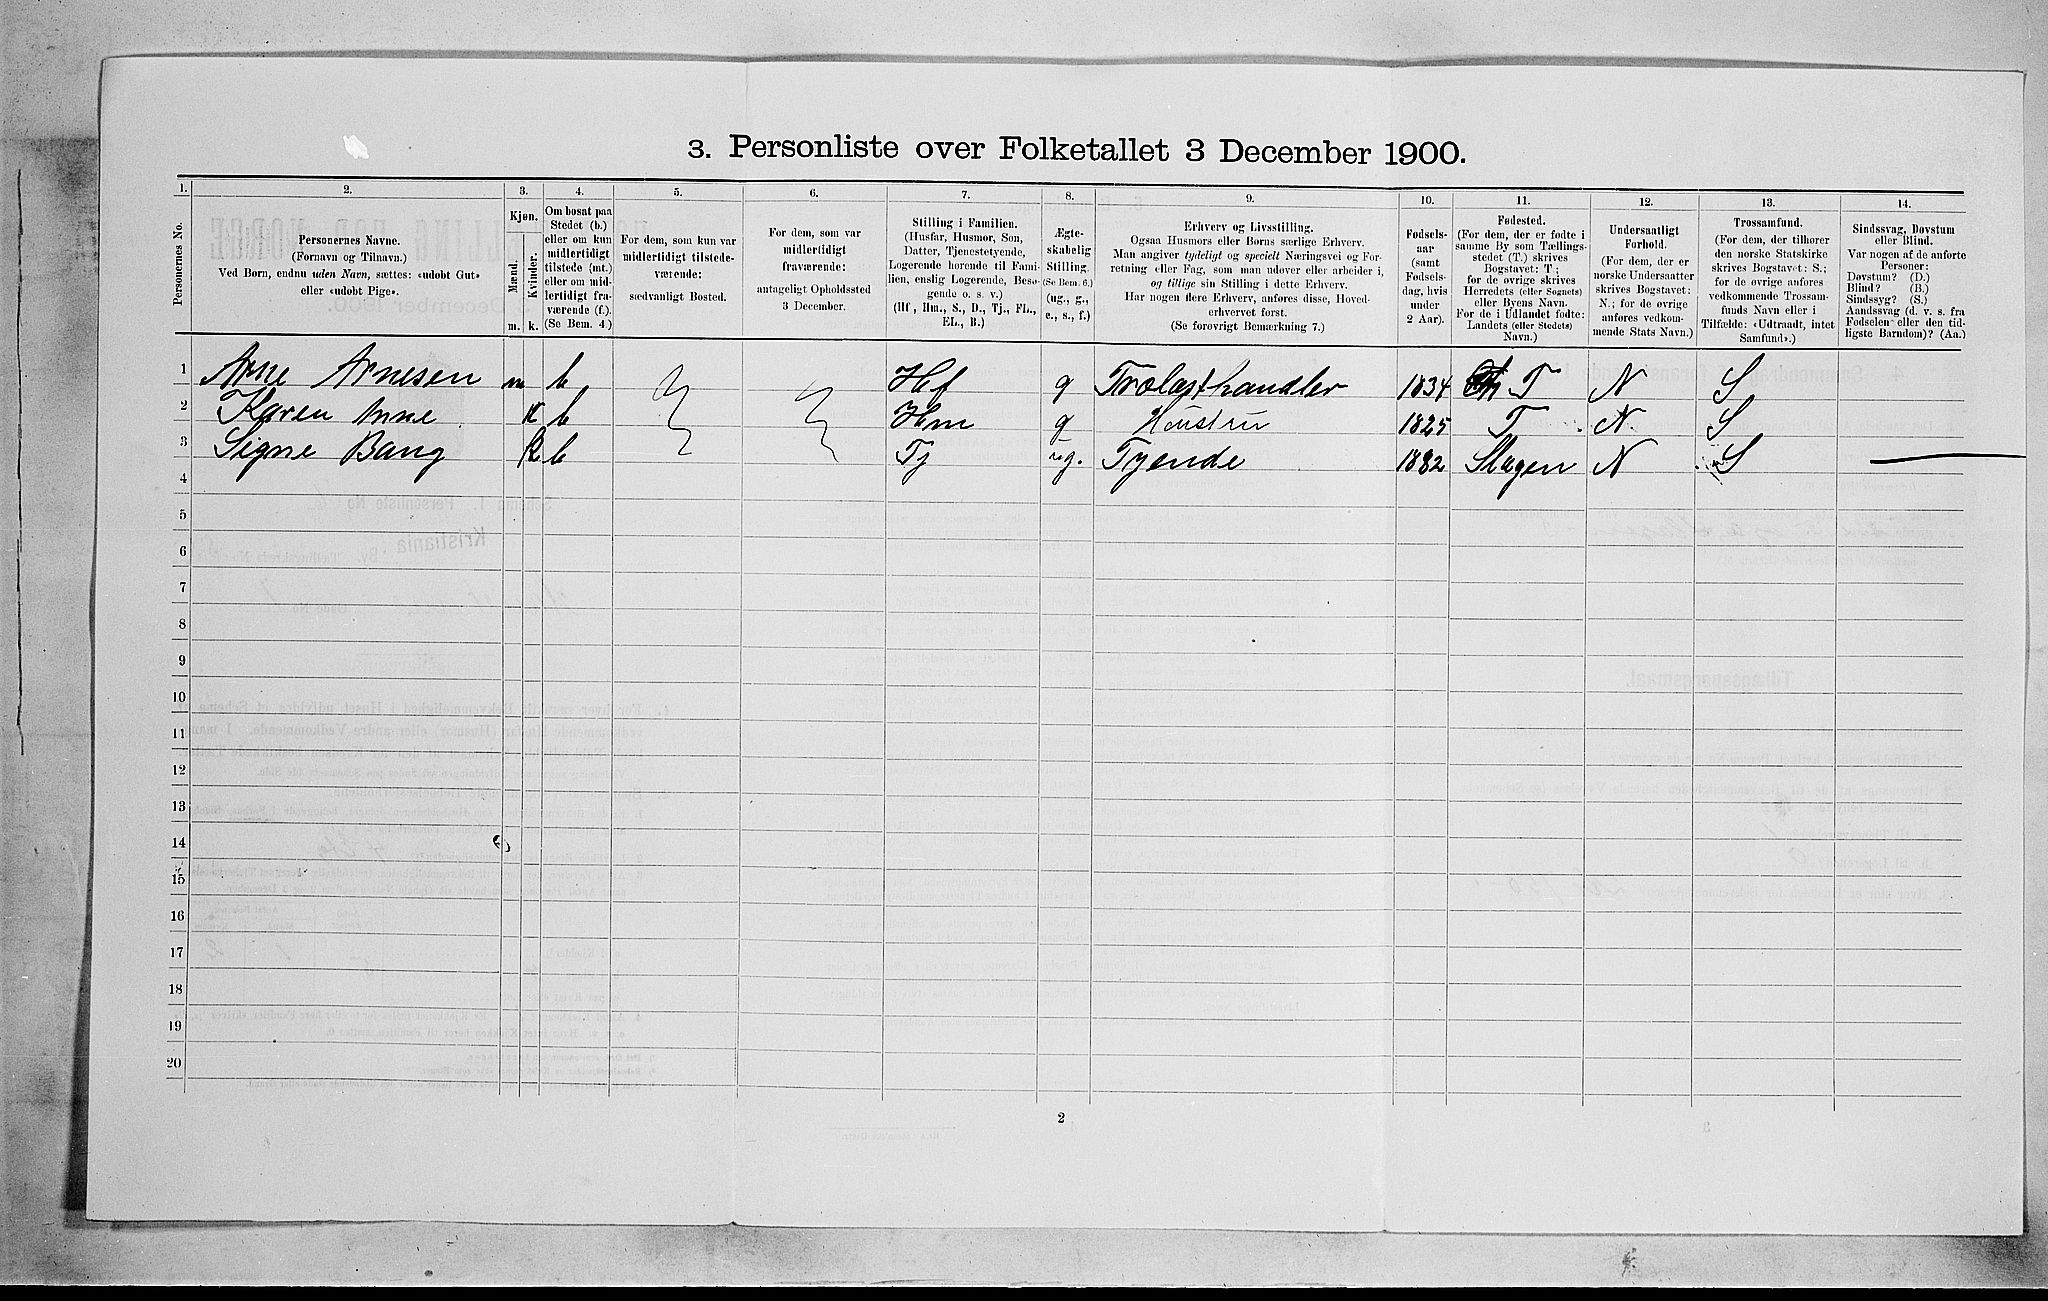 3. Personliste over Folketallet 3 December 1900.
1. 2. 3. 4. 5. 6. 7. 8. 9. 10. 11. 12. 13. 14.
Personernes No.
Personernes Navne.
(Fornavn og Tilnavn.)
Ved Børn, endnu uden Navn, sættes: «udobt Gut»
eller «udobt Pige».
Kjøn.
Mænd.
Kvinder.
m. k.
Om bosat paa
Stedet (b.)
eller om kun
midlertidigt
tilstede (mt.)
eller om mid-
lertidigt fra-
værende (f.).
(Se Bem. 4.)
For dem, som kun var
midlertidigt tilstede-
værende:
sædvanligt Bosted.
For dem, som var
midlertidigt
fraværende:
antageligt Opholdssted
3 December.
Stilling i Familien.
(Husfar, Husmor, Søn,
Datter, Tjenestetyende,
Logerende hørende til Fami-
lien, enslig Logerende, Besø-
gende o. s. v.)
(Hf., Hm., S., D., Tj., FL.,
EL., B.)
Ægte-
skabelig
Stilling.
(Se Bem. 6.)
(ug., g.,
e., s., f.)
Erhverv og Livsstilling.
Ogsaa Husmors eller Børns særlige Erhverv.
Man angiver tydeligt og specielt Næringsvei og For-
retning eller Fag, som man udøver eller arbeider i,
og tillige sin Stilling i dette Erhverv.
Har nogen flere Erhverv, anføres disse, Hoved-
erhvervet først.
(Se forøvrigt Bemærkning 7.)
Fødsels-
aar
(samt
Fødsels-
dag, hvis
under
2 Aar).
Fødested.
(For dem, der er fødte i
samme By som Tællings-
stedet (T.) skrives
Bogstavet: T;
for de øvrige skrives
Herredets (eller Sognets)
eller Byens Navn.
For de i Udlandet fødte:
Landets (eller Stedets)
Navn.)
Undersaatligt
Forhold.
(For dem, der er
norske Undersaatter
skrives Bogstavet:
N.; for de øvrige
anføres vedkom-
mende Stats Navn.)
Trossamfund.
(For dem, der tilhører
den norske Statskirke
skrives Bogstavet: S.;
for de øvrige anføres
vedkommende Trossam-
funds Navn eller i
Tilfælde: «Udtraadt, intet
Samfund».)
Sindssvag, Døvstum
eller Blind.
Var nogen af de anførte
Personer:
Døvstum? (D.)
Blind? (B.)
Sindssyg? (S.)
Aandssvag (d. v. s. fra
Fødselen eller den tid-
ligste Barndom)? (Aa.)
1 Arne Arnesen m b Hf g Trælasthandler 1834 T N S
2 Karen Anne K b Hm g Hustru 1825 T N. S
3 Signe Bang k b Tj ug. Tyende 1882 Slagen N S
4
5
6
7
8
9
10
11
12
13
14
15
16
17
18
19
20
2